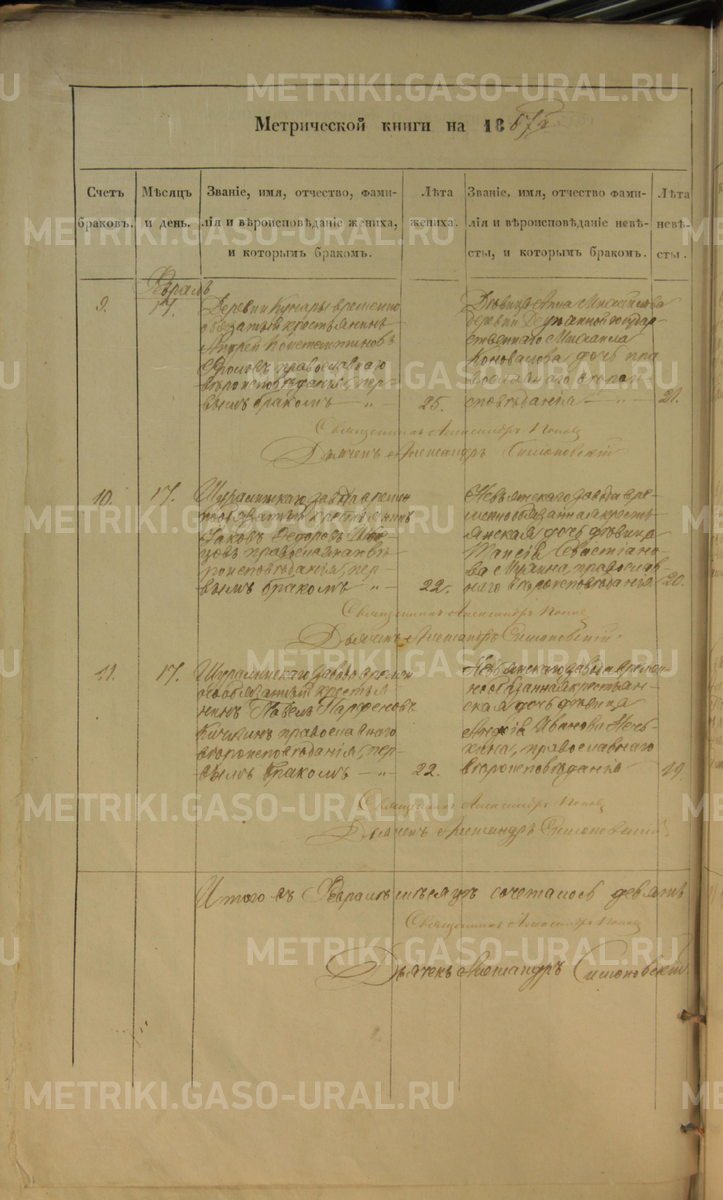 Метрической книги на 18
Счетъ браковъ.
Мѣсяцъ и день.
Званіе, имя, отчество, фами-
лія и вѣроисповѣданіе жениха,
и которымъ бракомъ.
Лѣта жениха.
Званіе, имя, отчество фами-
лія и вѣроисповѣданіе невѣ-
сты, и которымъ бракомъ.
Лѣта невѣ-
сты.
Февраль
9.
17.
Деревни Кунары временно
обязанный крестьянинъ
Андрей Константиновъ
православнаго
вѣроисповѣданія, пер-
вымъ бракомъ — „
25.
Дѣвица Анна Михайлова
деревни
Михаила
Коновалова дочь пра
вославнаго вѣроис
повѣданія — „
21.
Священникъ Александръ Попов
Дьячекъ Александръ Симоновскій
10.
17.
Шуралинскаго завода времен
нообязанный крестьянинъ
Яковъ Федоровъ
православнаго вѣ
роисповѣданія, пер-
вымъ бракомъ „
22.
Невьянскаго завода вре-
меннообязанная кресть
янская дочь дѣвица
Таисія Севастіано-
ва православ
наго вѣроисповѣданія
20.
Священникъ Александръ Попов
Дьячекъ Александръ Симоновскій
11.
17.
Шуралинскаго завода времен
нообязанный крестья
нинъ Павелъ Парфеновъ
Кичигинъ православнаго
вѣроисповѣданія, пер-
вымъ бракомъ — „
22.
Невьянскаго завода времен-
нообязанная крестьян-
ская дочь дѣвица
Иванова
православнаго
вѣроисповѣданія
19.
Священникъ Александръ Попов
Дьячекъ Александръ Симоновскій
Итого въ Февралѣ мѣсяцѣ сочеталось девять
Священникъ Александръ Попов
Дьячекъ Александръ Симоновскій
METRIKI.GASO-URAL.RU